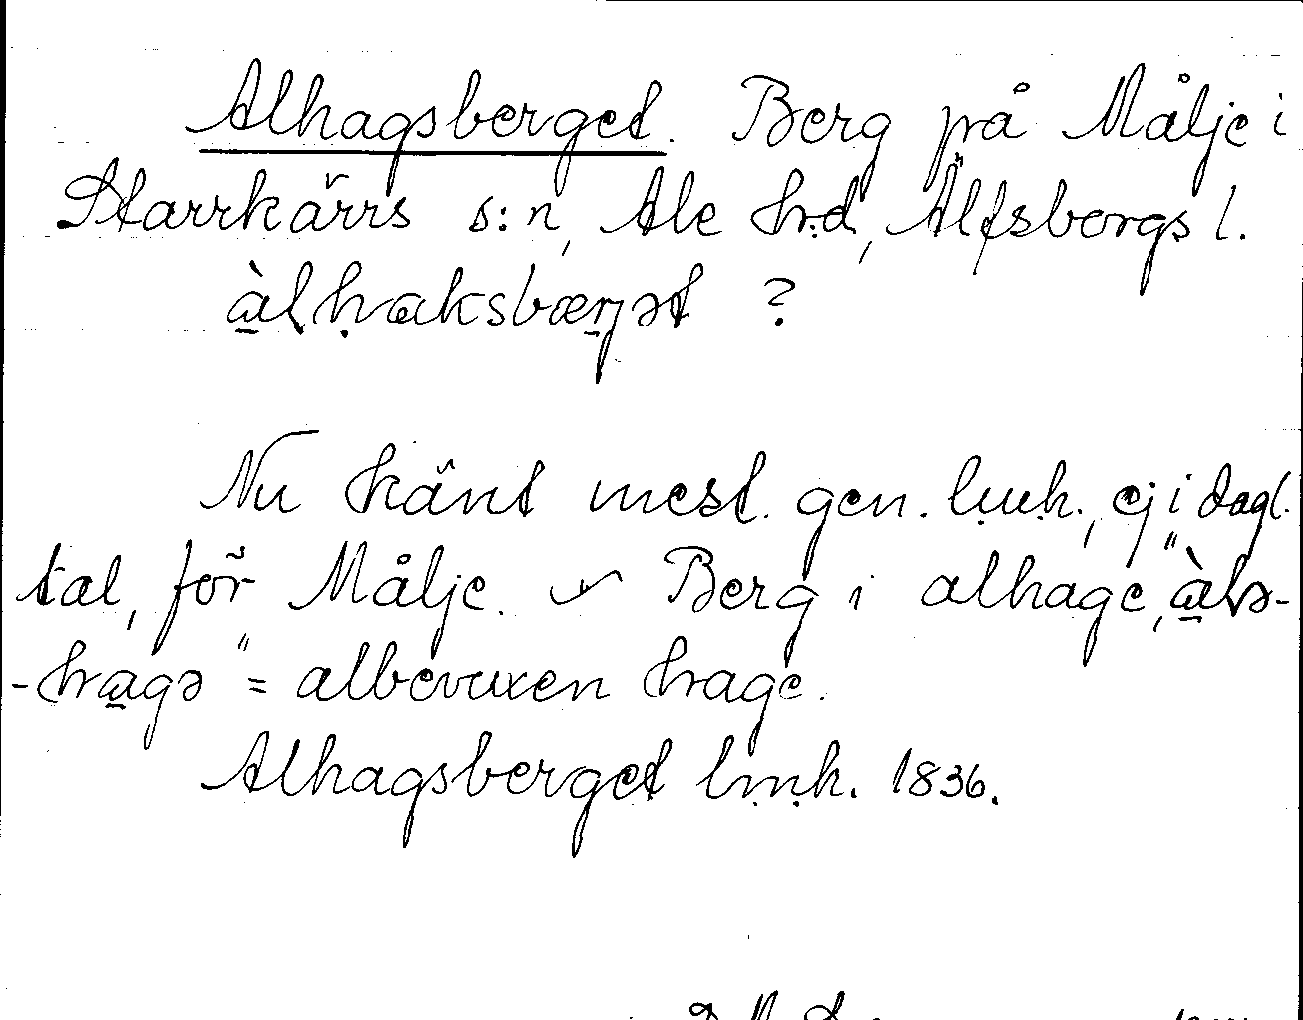 Alhagsberget. Berg på Målje i
Starrkärrs s:n, Ale h:d, Älfsborgs l.
àlhaksbærjət ?
Nu känt mest gen. lmk., ej i dagl.
tal, för Målje. Berg i alhage, "àlə-
-hagə" = albevuxen hage.
Alhagsberget lmk. 1836.